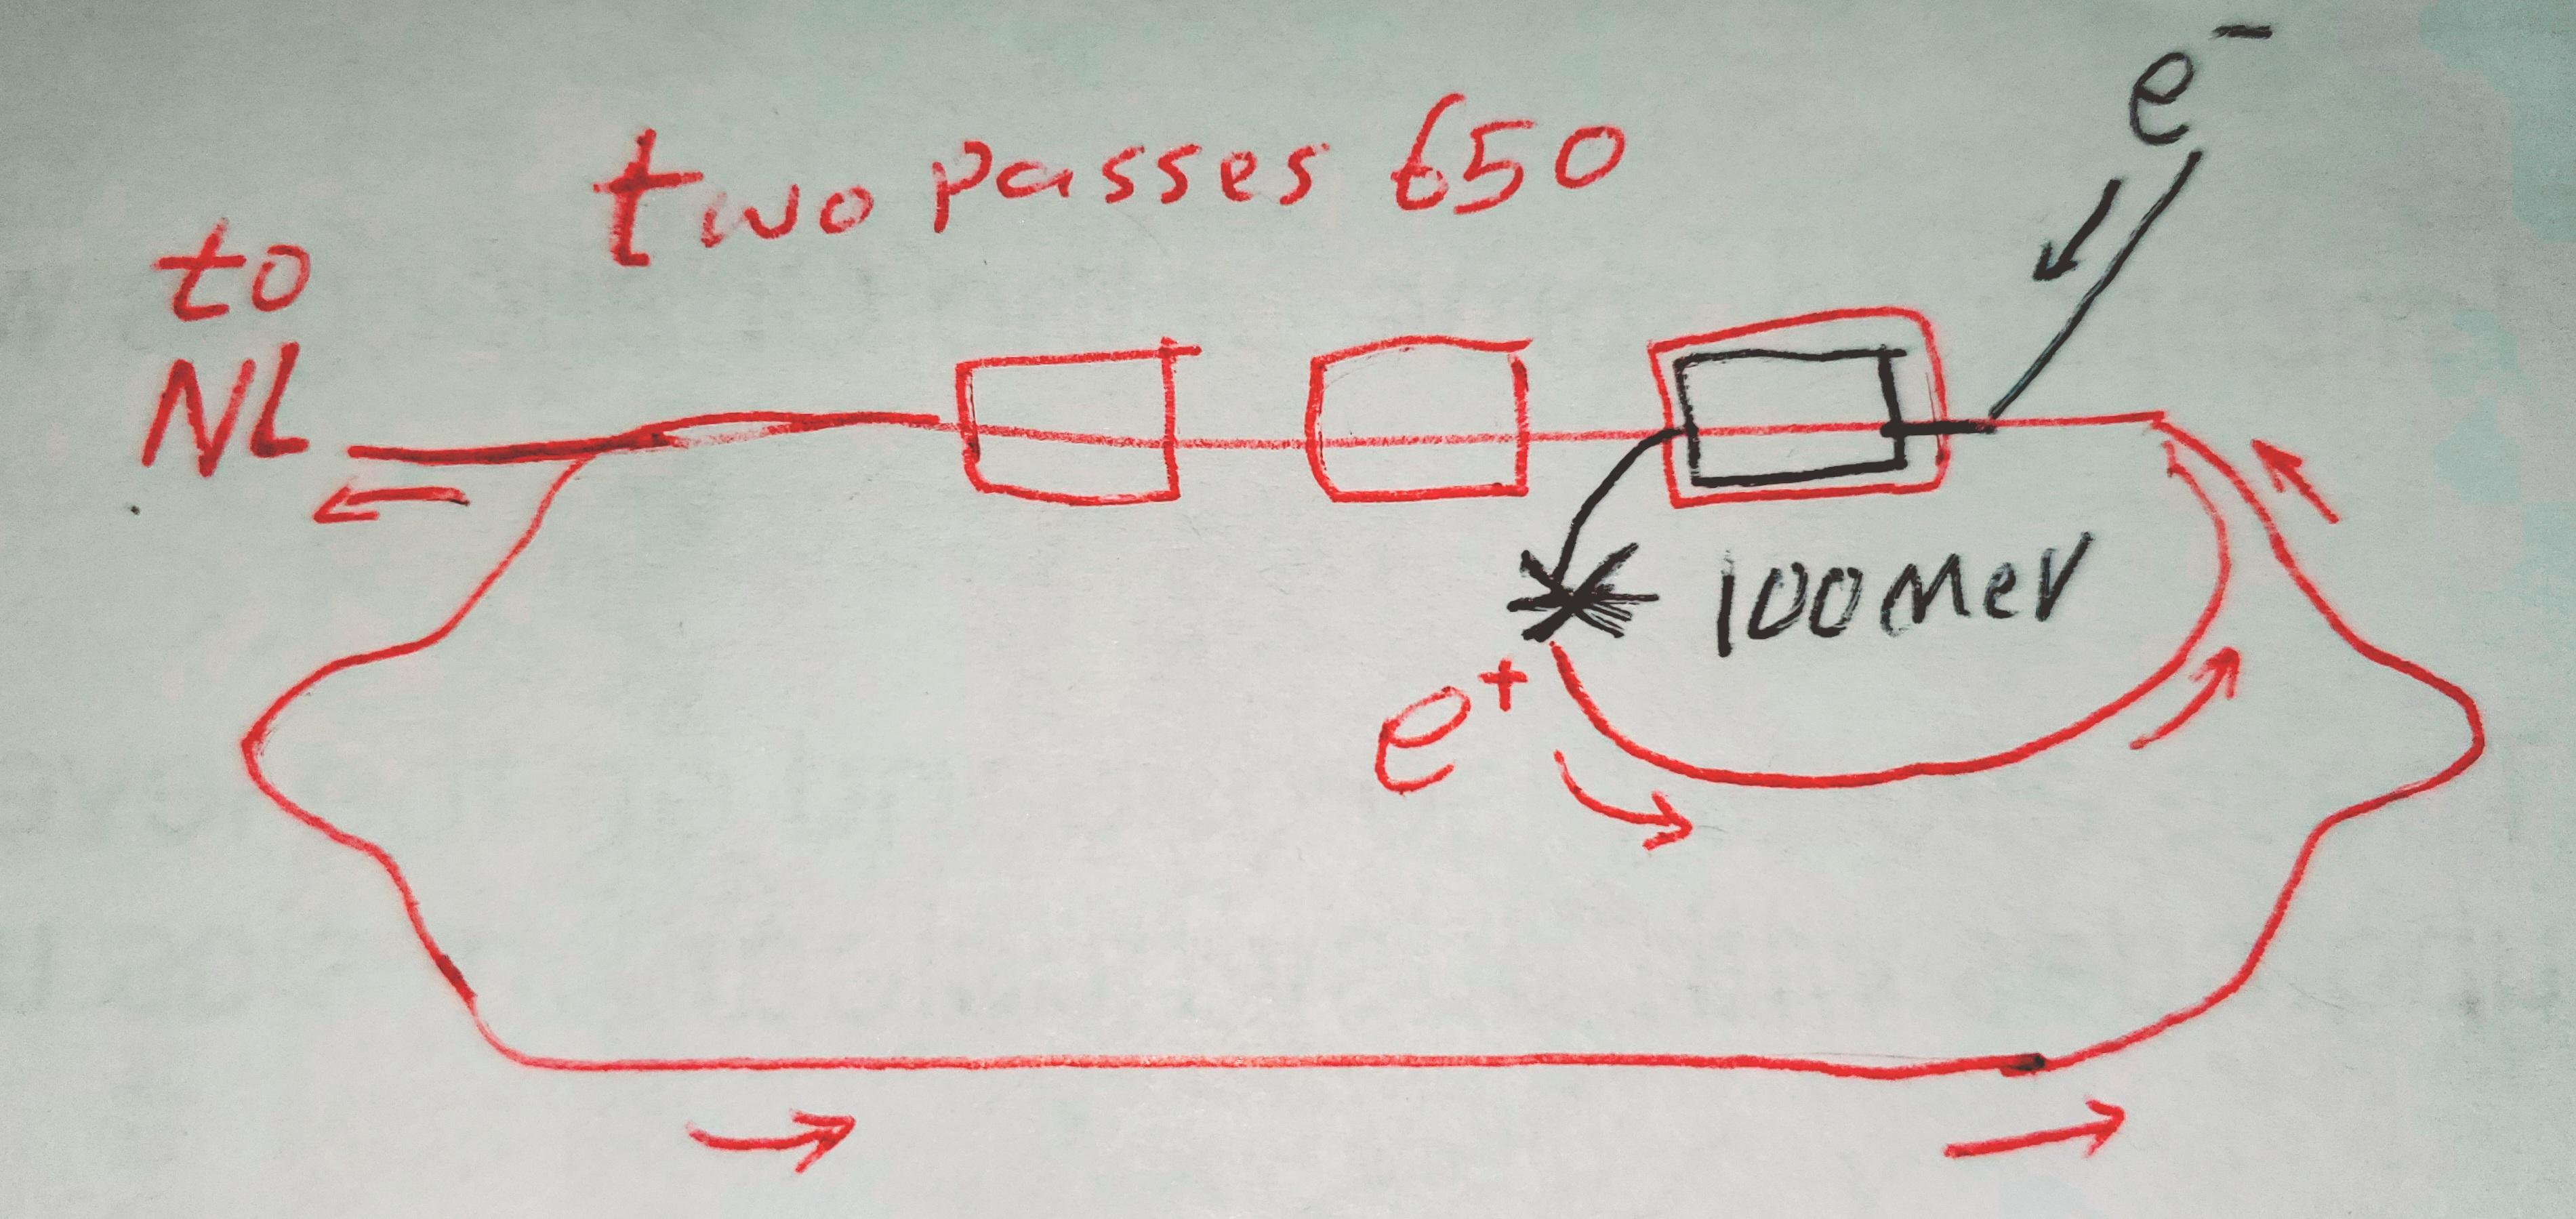 e⁻
two passes 650
to
NL
100MeV
e⁺